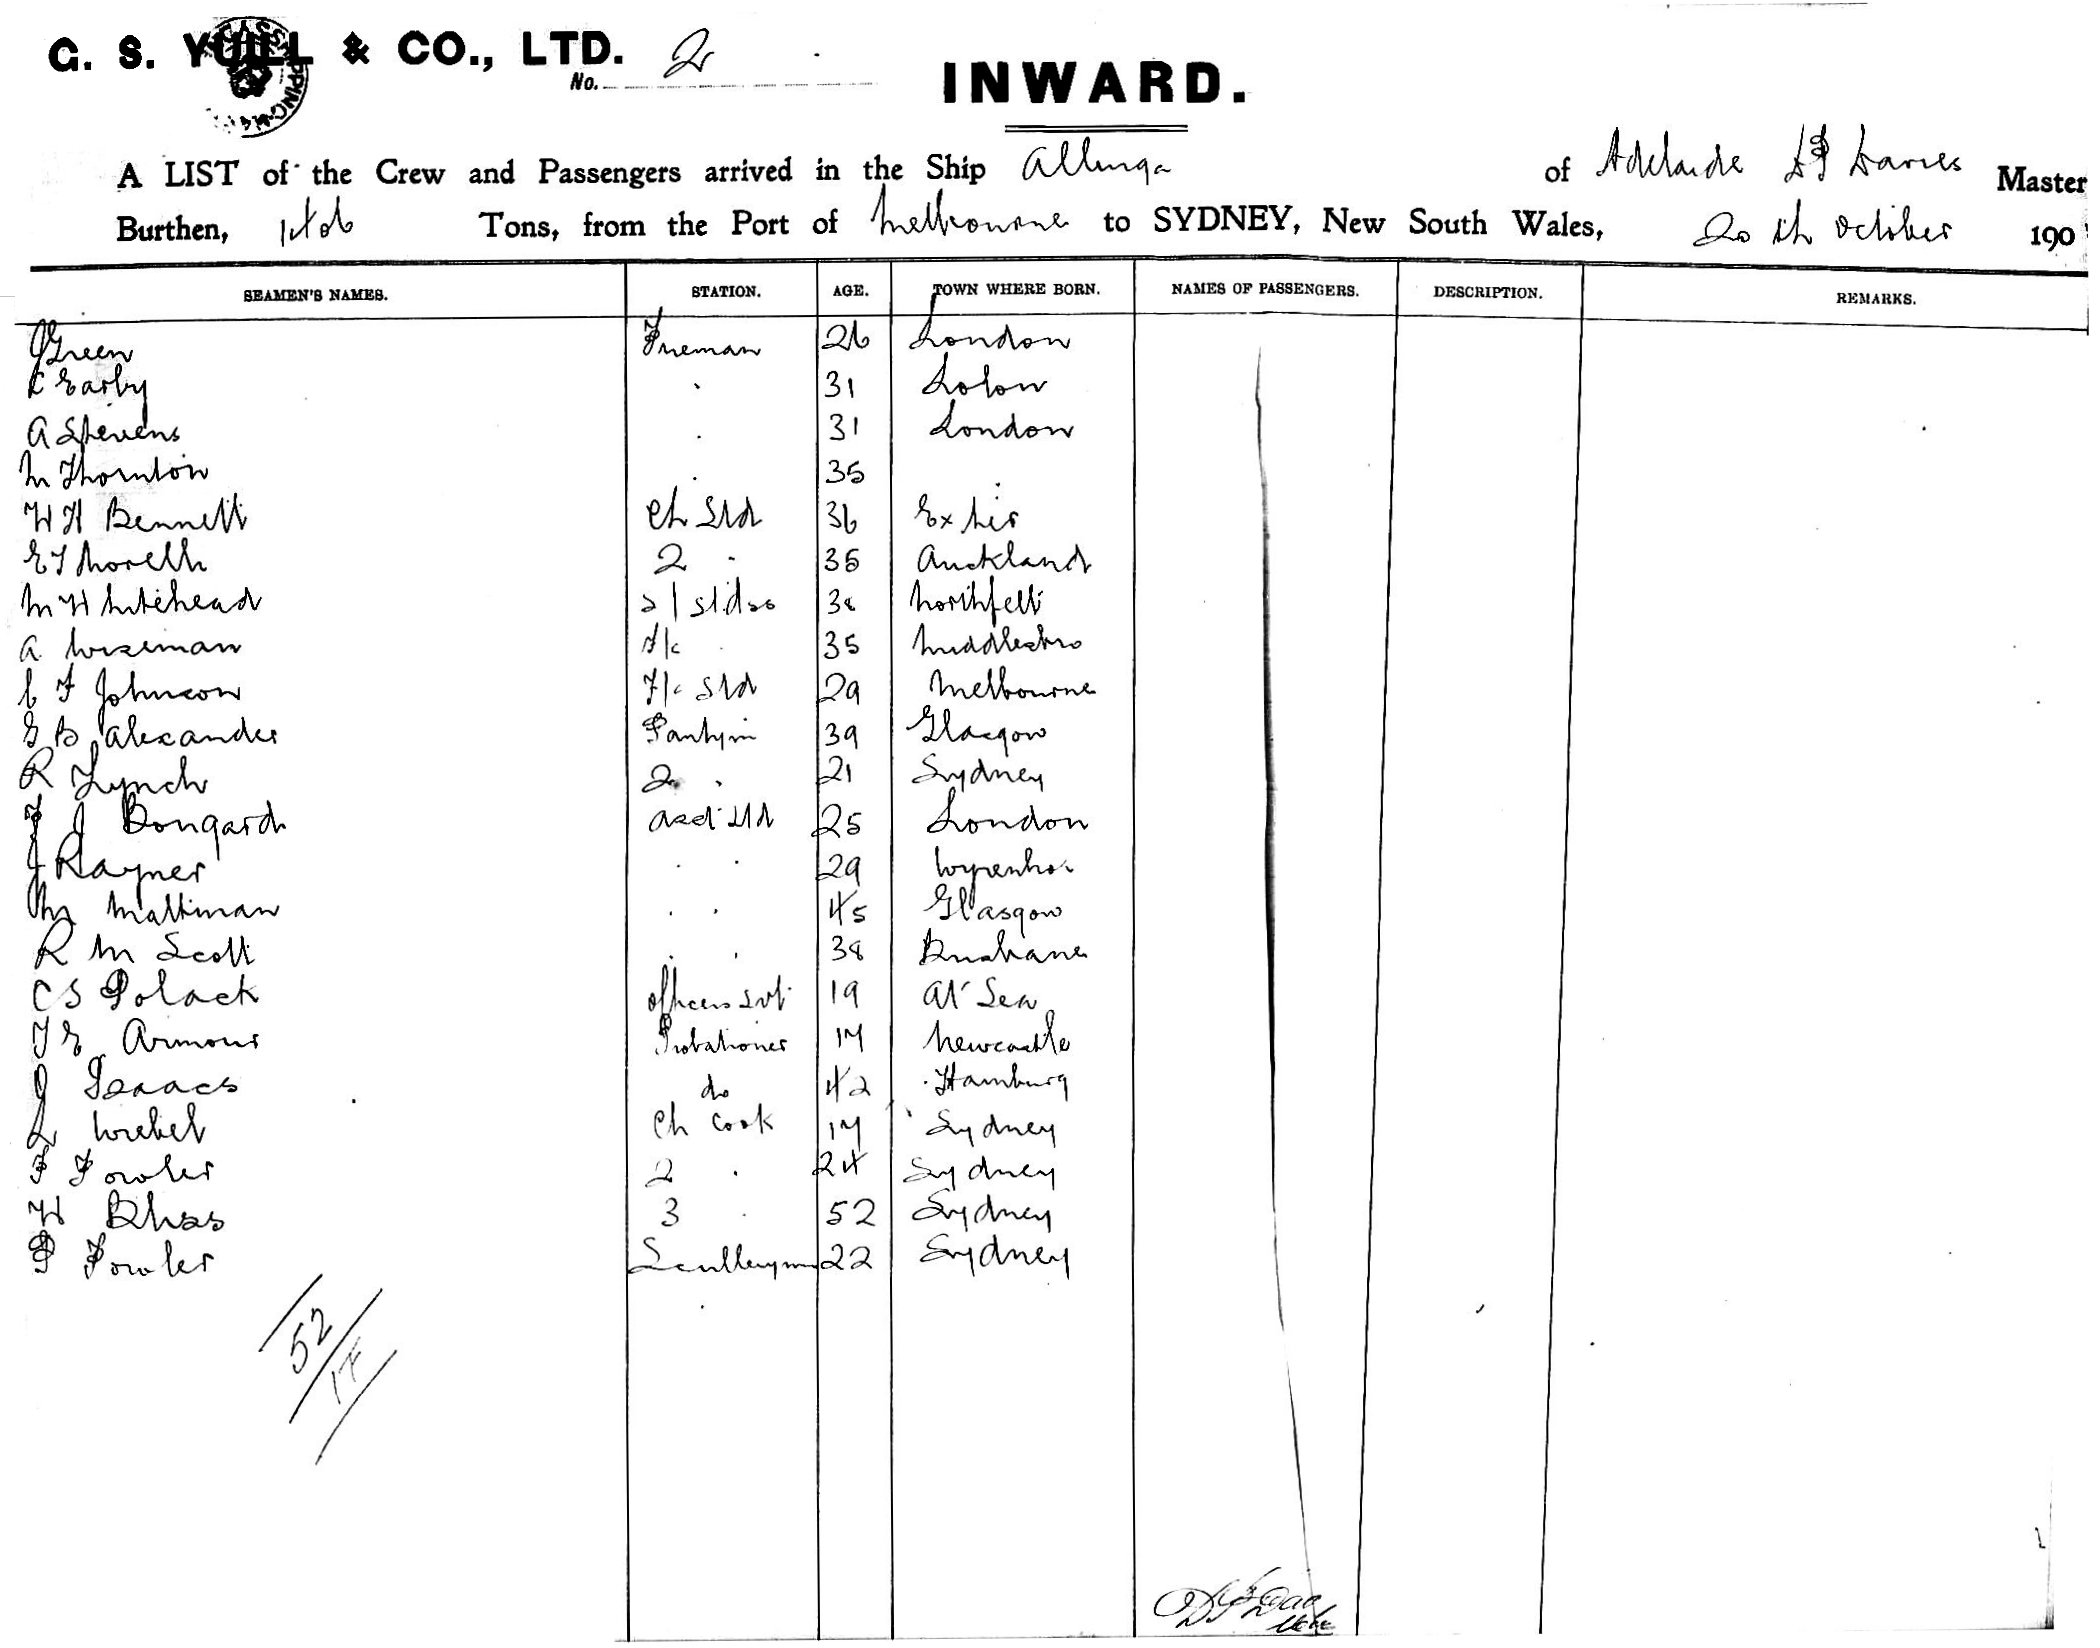 G. S. YUILL & CO., LTD.
No. 2
INWARD.
A LIST of the Crew and Passengers arrived in the Ship Allinga of Adelaide Davies Master
Burthen, Tons, from the Port of Melbourne to SYDNEY, New South Wales, 20th October 190
SEAMEN'S NAMES. STATION. AGE. TOWN WHERE BORN. NAMES OF PASSENGERS. DESCRIPTION. REMARKS.
J Green Fireman 26 London
C Earby 31
A Stevens 31 London
M Thornton 35
W H Bennett Ch Std 36 Exter
E J Morell 2 35 Auckland
M Whitehead 38
A Wiseman 35 Middlesbro
C F Johnson Std 29 Melbourne
G B Alexander Pantym 39 Glasgow
R Lynch 2 21 Sydney
F J Bongard asst Std 25 London
J Rayner 29
M Maltman 45 Glasgow
R M Scott 38 Brisbane
C S Polack officers svt 19 At Sea
T E Armour Probationer 17 Newcastle
J Isaacs do 42 Hamburg
L Wiebel Ch Cook 17 Sydney
F Fowler 2 24 Sydney
H 3 52 Sydney
P Fowler Sculleryman 22 Sydney
52
17